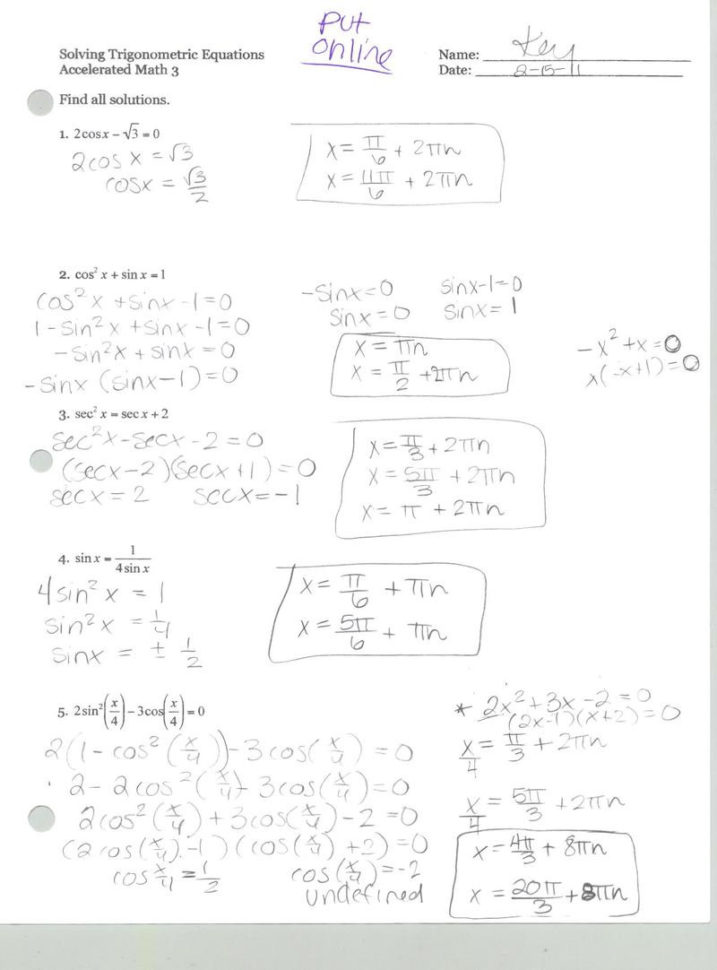 Put
Online
Solving Trigonometric Equations
Accelerated Math 3
Name: Key
Date: 2-15-11
Find all solutions.
1. 2cosx − √3 = 0
2cos x = √3
cosx = √3/2
x = π/6 + 2πn
x = 11π/6 + 2πn
2. cos² x + sin x = 1
cos²x + sinx - 1 = 0
1 - sin²x + sinx - 1 = 0
- sin²x + sinx = 0
- sinx (sinx - 1) = 0
-sinx = 0
sinx = 0
sinx-1=0
sinx = 1
x = πn
x = π/2 + 2πn
-x² + x = 0
x(-x+1) = 0
3. sec² x = sec x + 2
sec²x - secx - 2 = 0
(secx - 2)(secx + 1) = 0
secx = 2 secx = -1
x = π/3 + 2πn
x = 5π/3 + 2πn
x = π + 2πn
4. sin x = 1/(4 sin x)
4sin²x = 1
sin²x = 1/4
sinx = ± 1/2
x = π/6 + πn
x = 5π/6 + πn
5. 2sin²(x/4) − 3cos(x/4) = 0
2(1 - cos²(x/4)) - 3cos(x/4) = 0
2 - 2cos²(x/4) - 3cos(x/4) = 0
2cos²(x/4) + 3cos(x/4) - 2 = 0
(2cos(x/4) - 1)(cos(x/4) + 2) = 0
cos x/4 = 1/2
cos(x/4) = -2
undefined
* 2x² + 3x - 2 = 0
(2x-1)(x+2) = 0
x/4 = π/3 + 2πn
x/4 = 5π/3 + 2πn
x = 4π/3 + 8πn
x = 20π/3 + 8πn